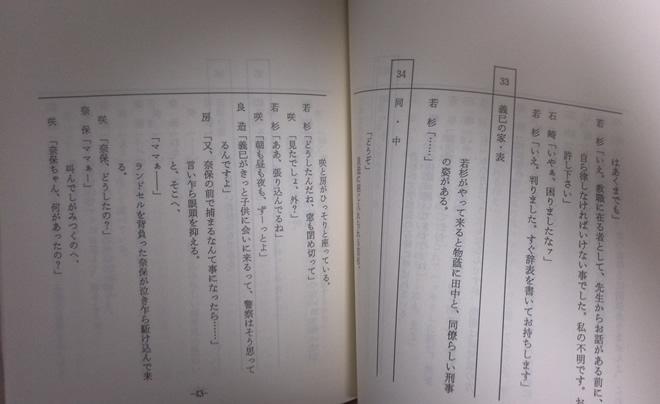 はあくまでも」
若杉「いえ、教職に在る者として、先生からお話がある前に、
自ら律しなければいけない事でした。私の不明です。お
許し下さい」
石崎「いやぁ、困りましたなァ」
若杉「いえ、判りました。すぐ辞表を書いてお持ちします」
33 義巳の家・表
若杉がやって来ると物蔭に田中と、同僚らしい刑事
の姿がある。
若杉「……」
34 同・中
「どうぞ」
咲と房がひっそりと座っている。
若杉「どうしたんだね、窓も閉め切って」
咲「見たでしょ、外?」
若杉「ああ、張り込んでるね」
咲「朝も昼も夜も、ずーっとよ」
良造「義巳がきっと子供に会いに来るって、警察はそう思って
るんですよ」
房「又、奈保の前で捕まるなんて事になったら……」
言い乍ら眼頭を抑える。
と、そこへ、
「ママぁー」
ランドセルを背負った奈保が泣き乍ら駆け込んで来
る。
咲「奈保、どうしたの?」
奈保「ママぁー」
叫んでしがみつくのへ、
咲「奈保ちゃん、何があったの?」
-43-